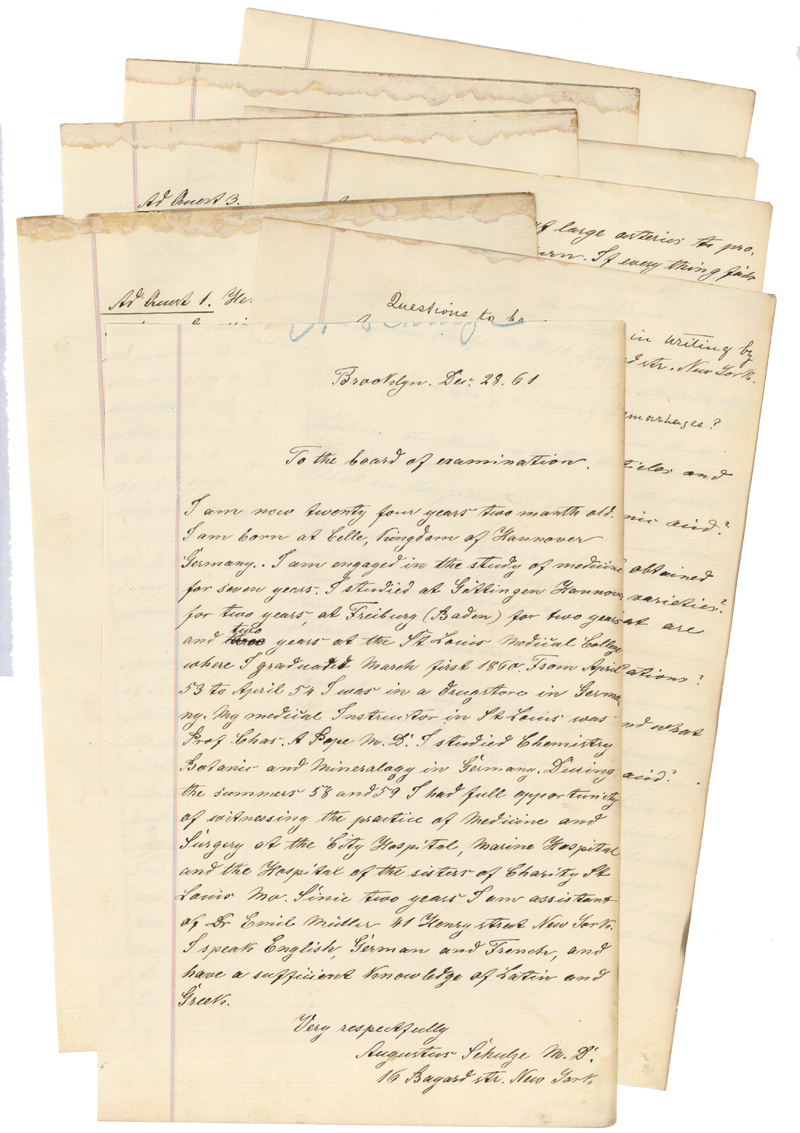 Ad Quest 3.
of large arteries to pro-
. If every thing fails
Ad Quest 1. He
Questions to be
in writing by
str. New York.
Brooklyn. Dec. 28. 61
To the board of examination.
I am now twenty four years two month old.
I am born at Celle, Kingdom of Hannover
Germany. . I am engaged in the study of medicine
for seven years. I studied at Göttingen Hannover
for two years, at Freiburg (Baden) for two years
and two years at the St Louis Medical College
where I graduated March first 1860. From April
53 to April 54 I was in a drugstore in Germa-
ny. My medical Instructor in St Louis was
Prof Chas. A Pope M. D. I studied Chemistry
Botanic and Mineralogy in Germany. During
the summers 58 and 59 I had full opportunity
of witnessing the practice of Medicine and
Surgery at the City Hospital, Marine Hospital
and the Hospital of the sisters of Charity St
Louis Mo. Sinic two years I am assistant
of Dr Emil Müller 41 Henry street New York.
I speak English, German and French, and
have a sufficient knowledge of Latin and
Greek.
Very respectfully
Augustus Schulze M. D.
16 Bayard str. New York.
emorhages?
and
acid?
obtained
varieties?
are
ations?
nd what
acid?